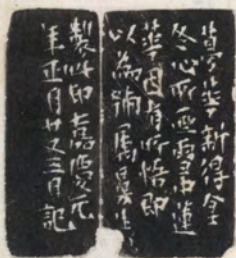 蕚華新得金
冬心所画雪中蓮
華因有所悟即
以為號屬曼生
製此印嘉慶元
年正月廿又三日記